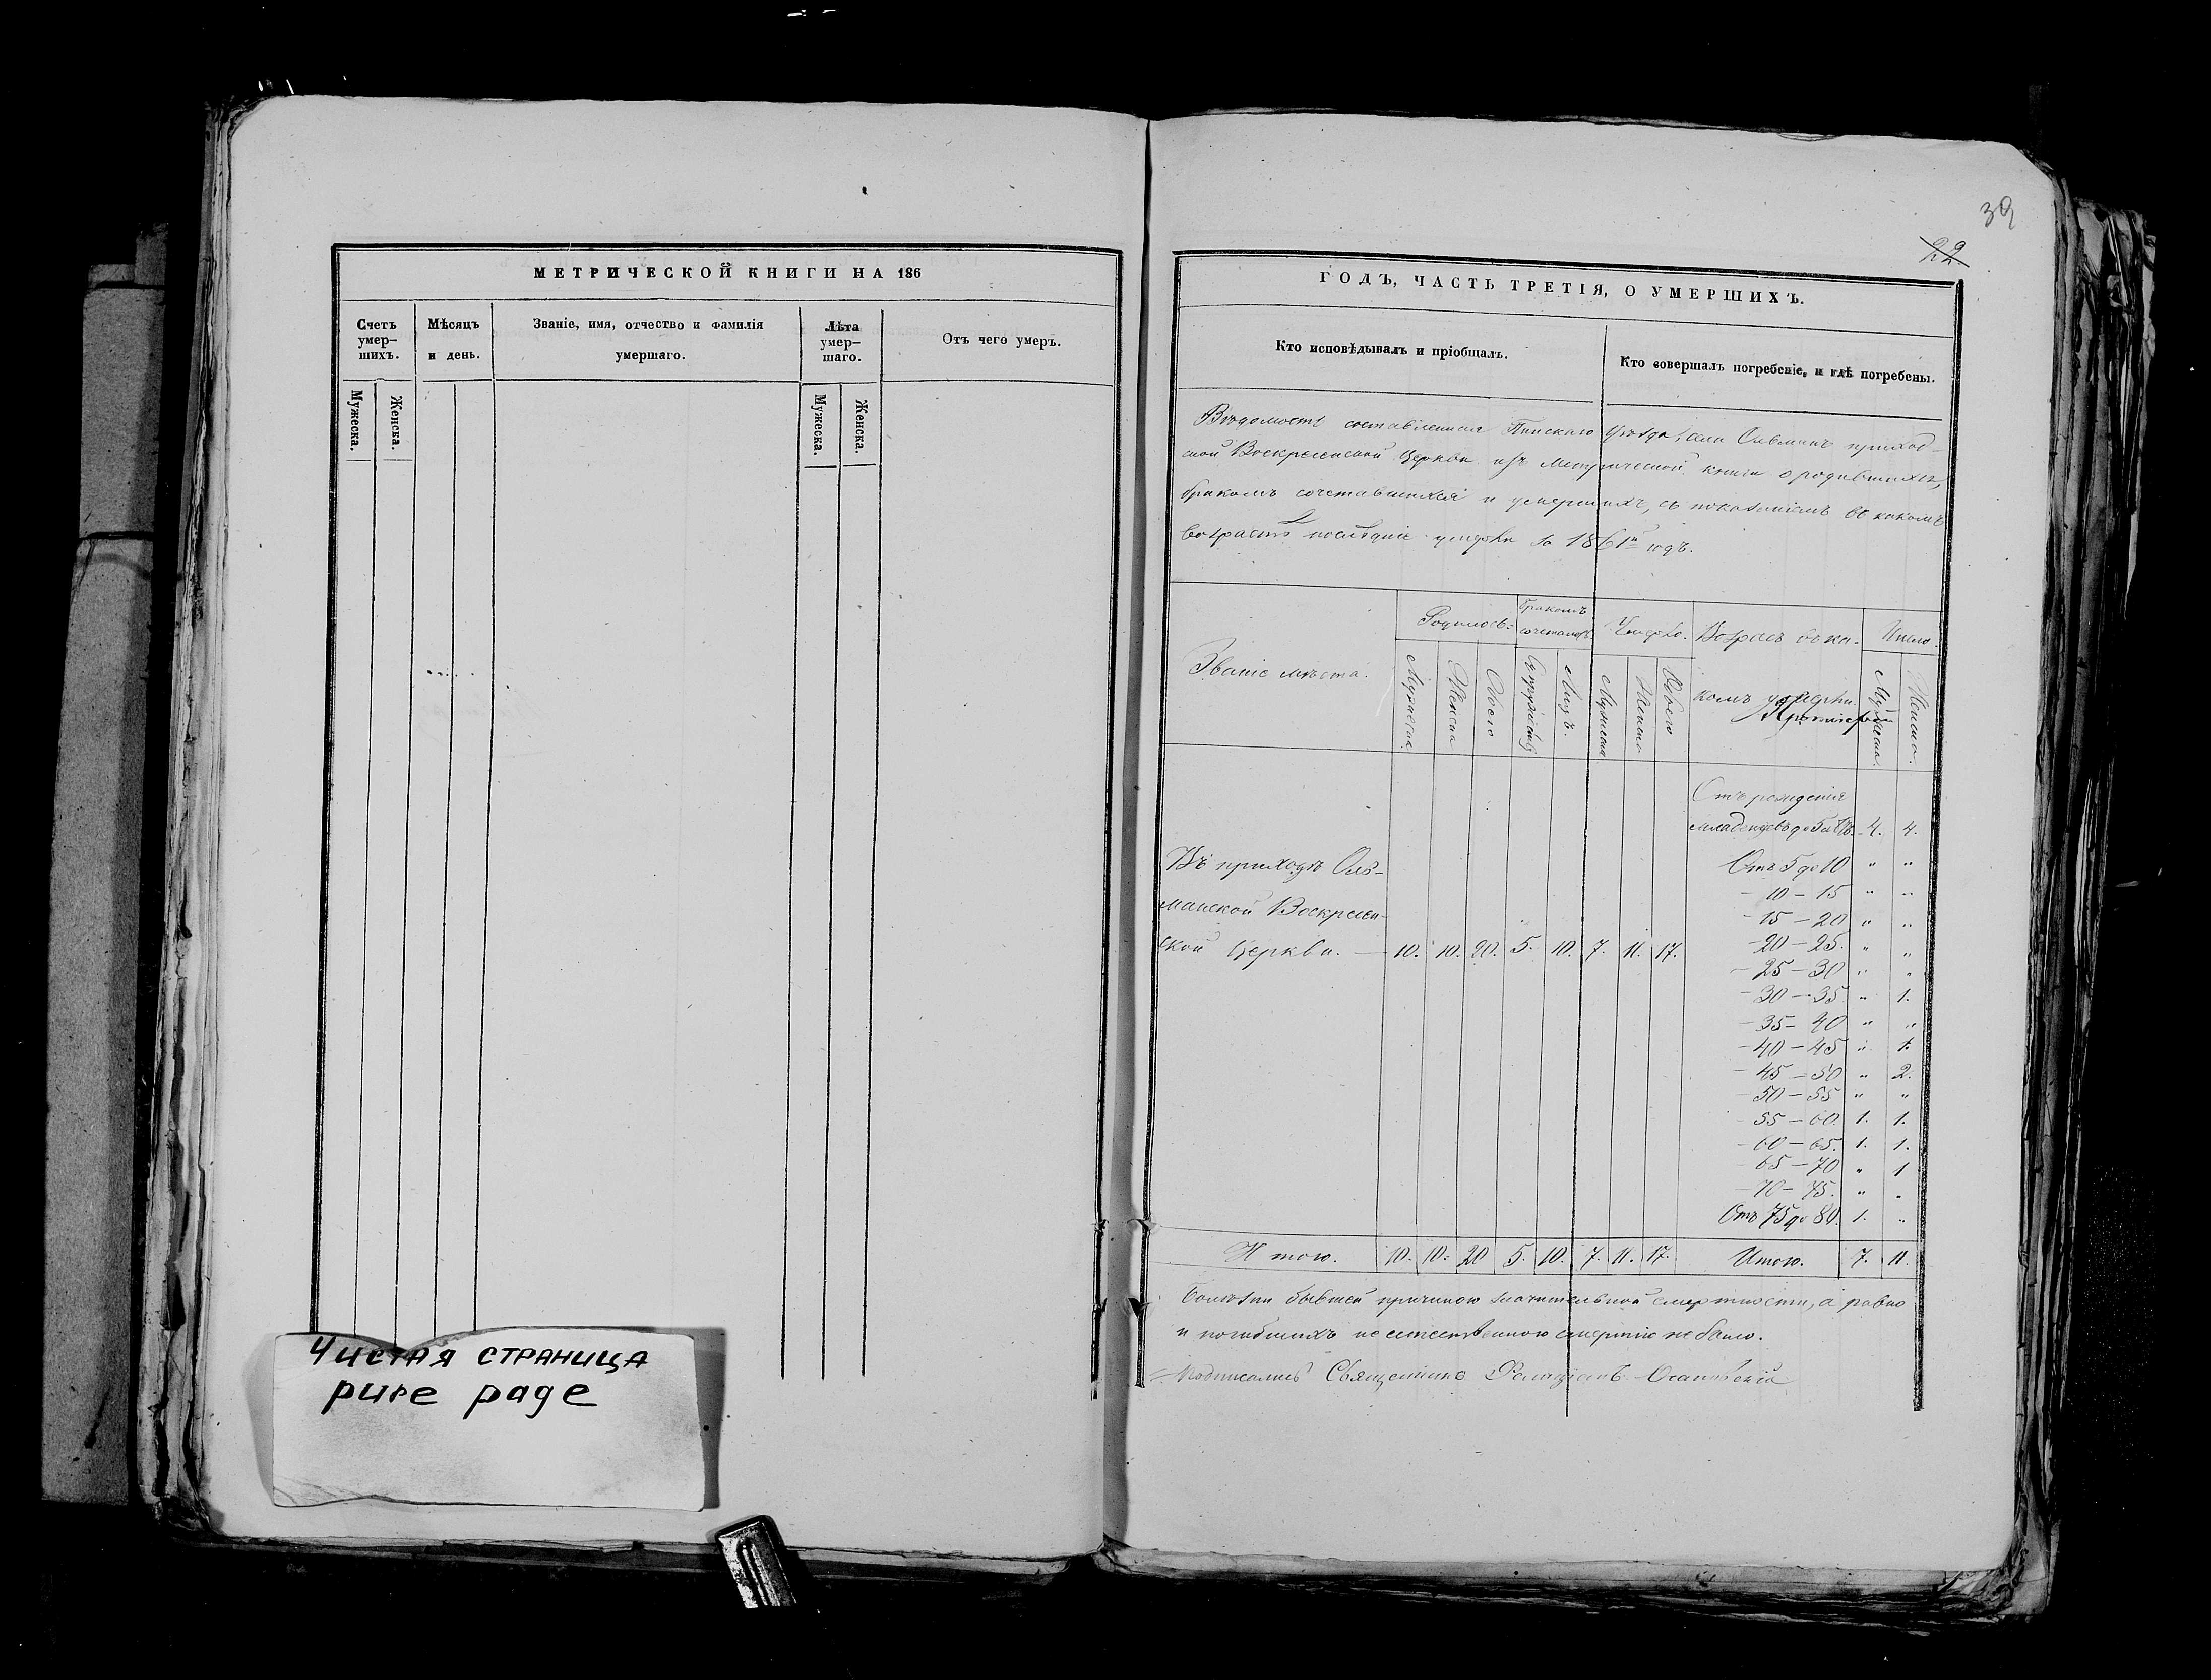 39
22
МЕТРИЧЕСКОЙ КНИГИ НА 186
Счетъ умер-шихъ.
Мѣсяцъ и день.
Званіе, имя, отчество и фамилія умершаго.
Лѣта умер-шаго.
Отъ чего умеръ.
Мужеска.
Женска.
Мужеска.
Женска.
Чистая страница
pure page
ГОДЪ, ЧАСТЬ ТРЕТІЯ, О УМЕРШИХЪ.
Кто исповѣдывалъ и пріобщалъ.
Кто совершалъ погребеніе, и гдѣ погребены.
Вѣдомость составленная Пинскаго Уѣзда, села Ольманъ приход-
ской Воскресенской Церкви изъ Метрической книги о родившихся,
бракомъ сочетавшихся и умершихъ, съ показаніемъ въ какомъ
возрастѣ послѣдніе умерли за 1861й годъ.
Званіе мѣста.
Родилось:
бракомъ
Умерло.
Возрасъ въ ка-
Число.
Мужеска
Женска
Обоего
Лицъ.
Мужеска
Женска
Обоего
комъ умерли.
Мужеска.
Женска.
Отъ рожденія
младенцевъ до 5 лѣтъ. 4. 4.
Отъ 5 до 10 " "
- 10 - 15 " "
- 15 - 20 " "
- 20 - 25. " "
- 25 - 30 " "
- 30 - 35 " 1.
- 35 - 40 " "
- 40 - 45 " 1.
- 45 - 50 " 2.
- 50 - 55 " "
- 55 - 60. 1. 1.
- 60 - 65. 1. 1.
- 65 - 70 " 1
- 70 - 75. " "
Отъ 75 до 80. 1. "
Въ приходѣ Оль-
манской Воскресен-
ской Церкви. — 10. 10. 20. 5. 10. 7. 11. 17.
Итого. 10. 10. 20 5. 10. 7. 11. 17. Итого. 7. 11.
Болѣзни бывшей причиною значительной смертности, а равно
и погибшихъ не естественною смертію не было.
Подписались Священникъ